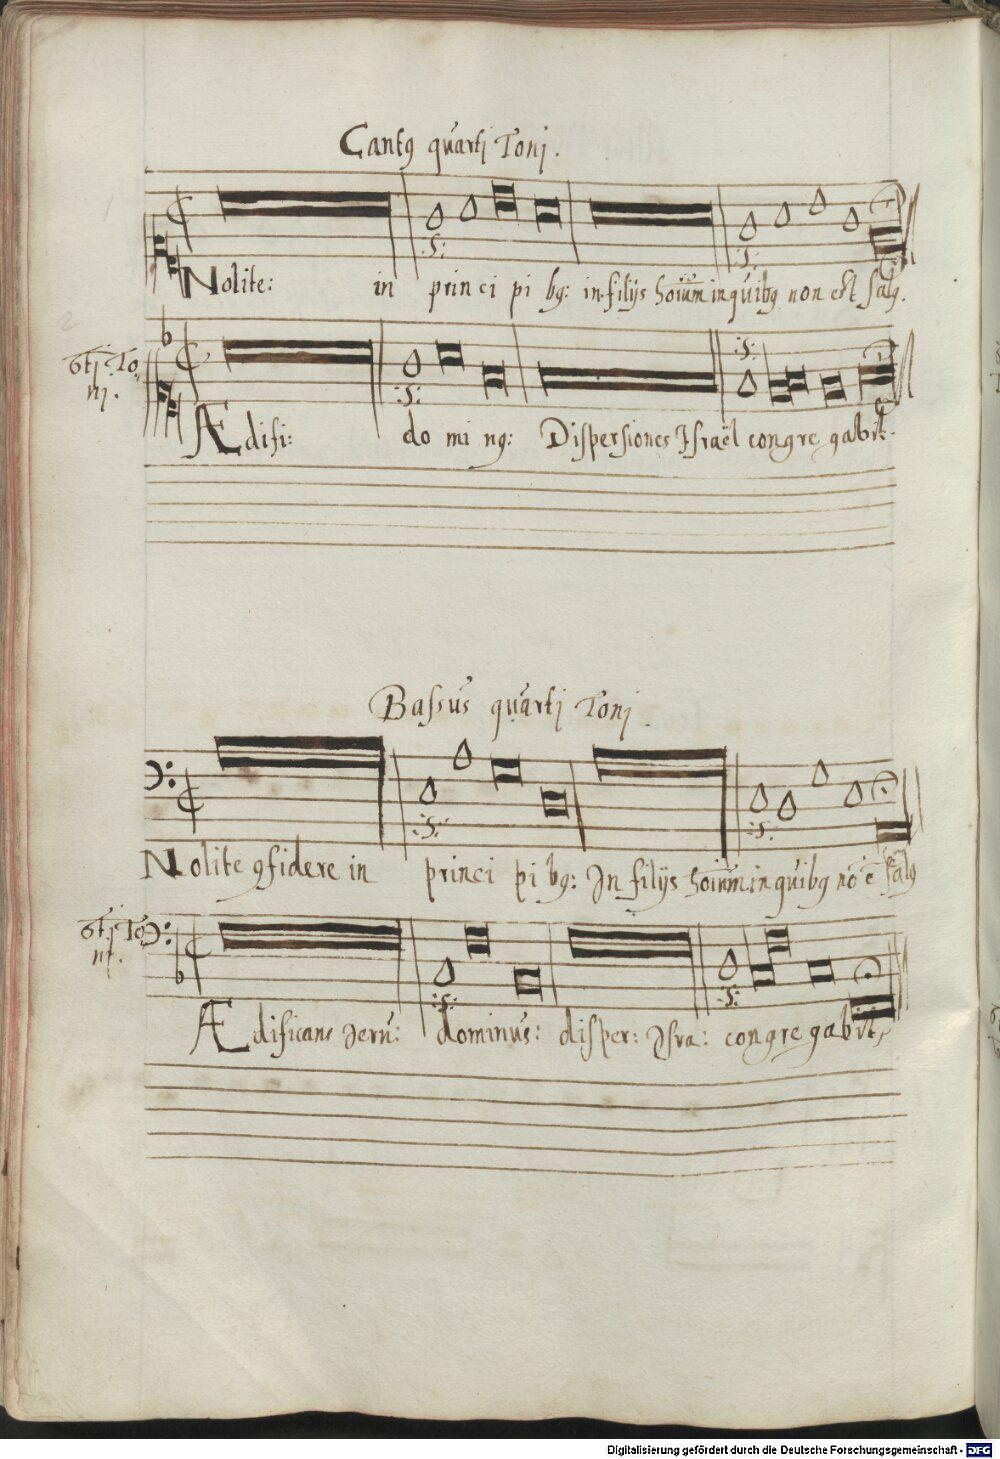 Cantꝯ quarti Toni.
Nolite: in princi pi bꝯ: in filijs hoium in quibꝯ non est salꝯ.
6ti To
ni.
Ædifi: do mi nꝯ: Dispersiones Israël congre gabit.
Bassus quarti Toni.
Nolite ꝯfidere in princi pi bꝯ: In filijs hoium in quibꝯ nō ē salꝯ
6ti To
ni.
Ædificans Jeru: dominus: disper: Isra: congre gabit,
Digitalisierung gefördert durch die Deutsche Forschungsgemeinschaft - DFG